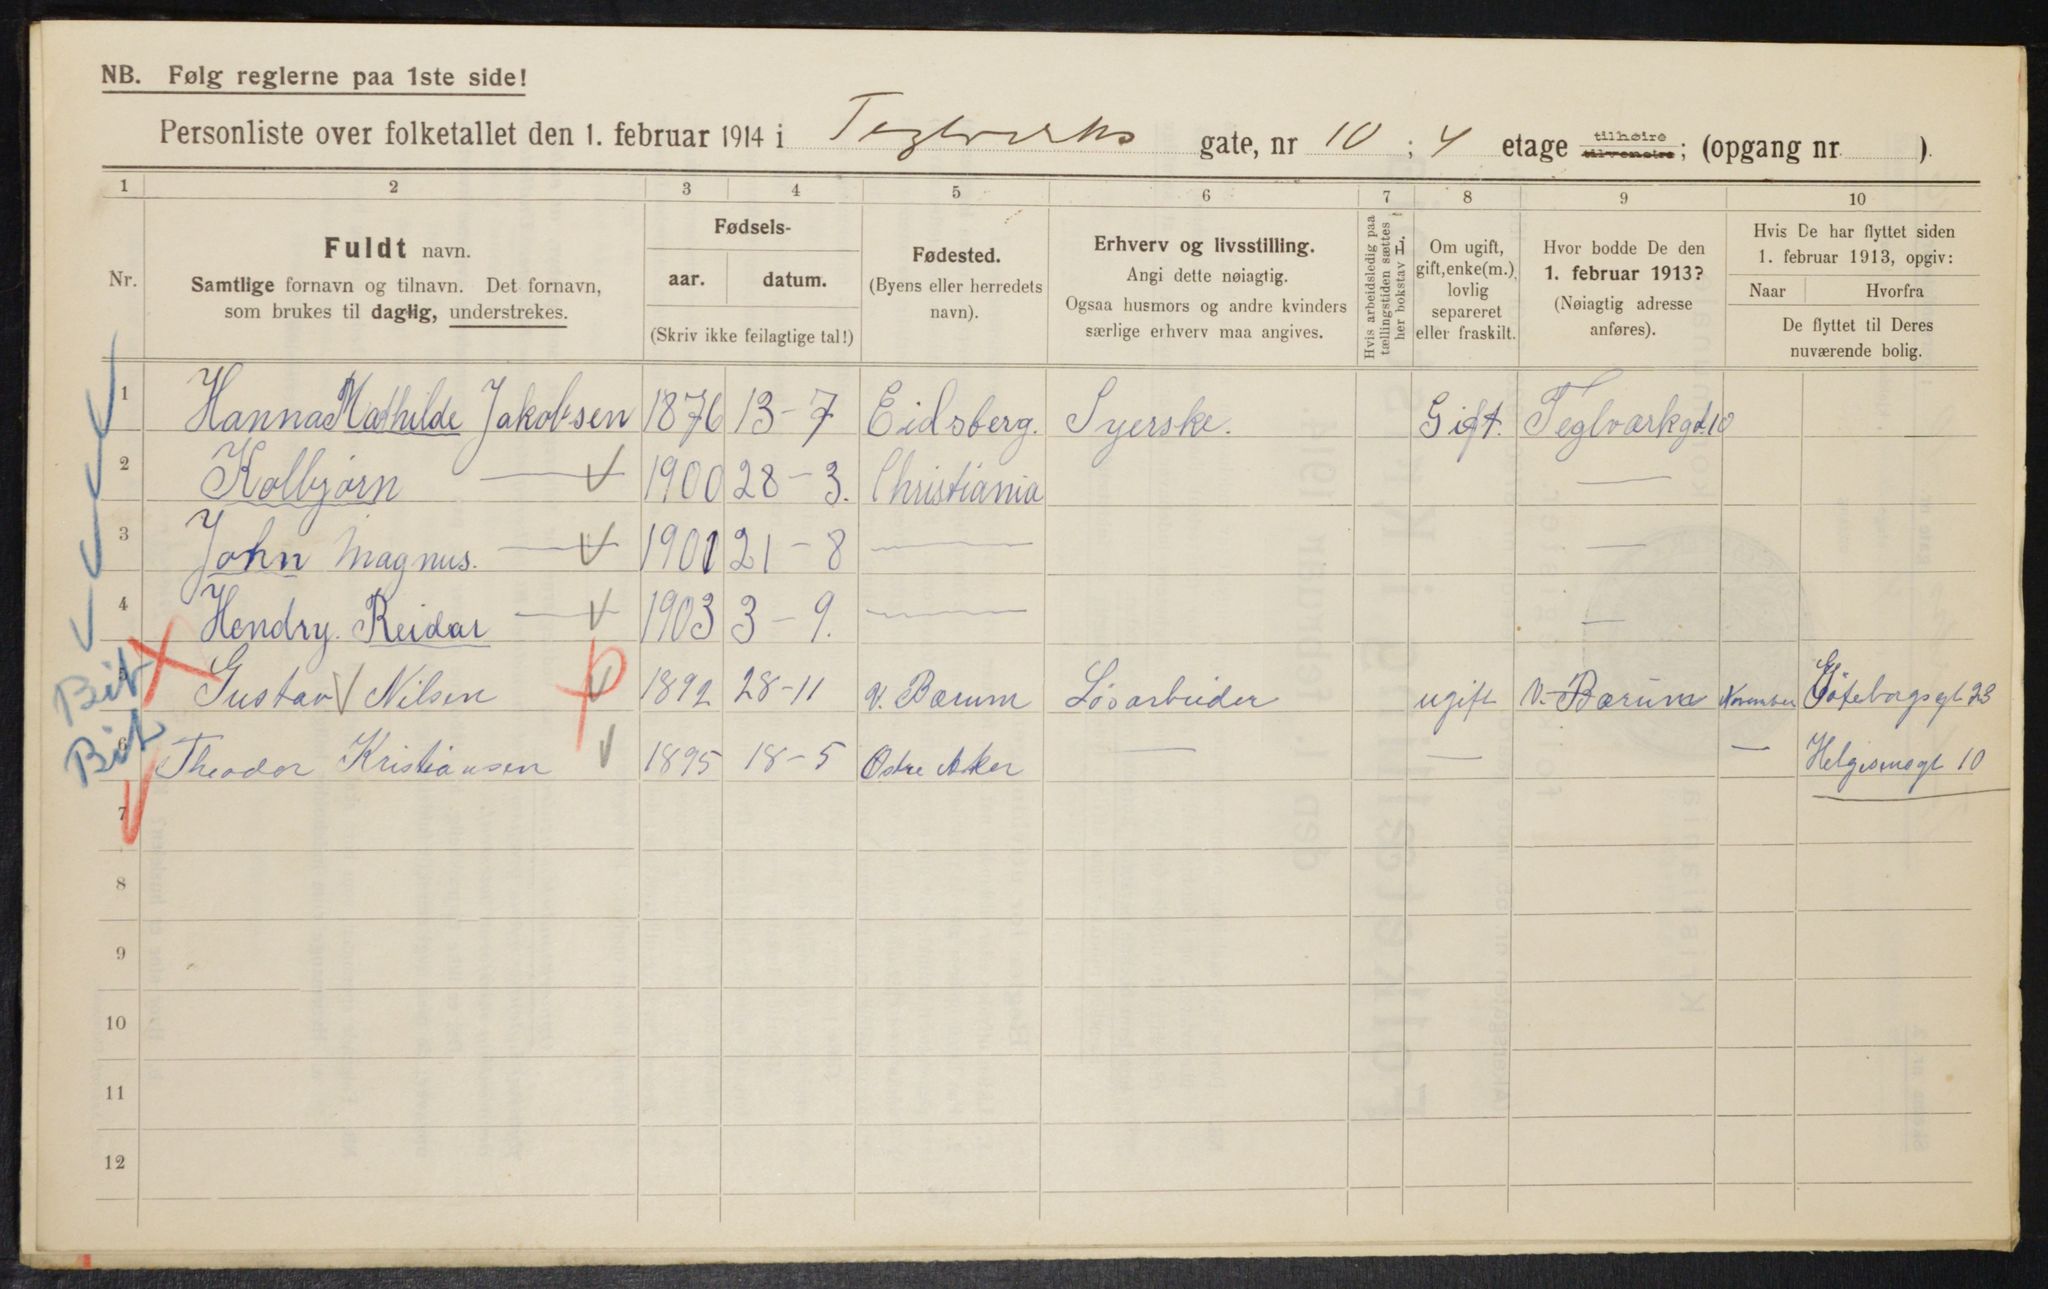 NB. Følg reglerne paa 1ste side!
Personliste over folketallet den 1. februar 1914 i Teglverks gate, nr 10; 4 etage tilhøire tilvenstre; (opgang nr )
1 2 3 4 5 6 7 8 9 10
Nr.
Fuldt navn.
Samtlige fornavn og tilnavn. Det fornavn,
som brukes til daglig, understrekes.
Fødsels-
aar. datum.
(Skriv ikke feilagtige tal!)
Fødested.
(Byens eller herredets
navn).
Erhverv og livsstilling.
Angi dette nøiagtig.
Ogsaa husmors og andre kvinders
særlige erhverv maa angives.
Hvis arbeidsledig paa
tællingstiden sættes
her bokstav L.
Om ugift,
gift, enke(m.),
lovlig
separeret
eller fraskilt.
Hvor bodde De den
1. februar 1913?
(Nøiagtig adresse
anføres).
Hvis De har flyttet siden
1. februar 1913, opgiv:
Naar Hvorfra
De flyttet til Deres
nuværende bolig.
1 Hanna Mathilde Jakobsen 1876 13-7 Eidsberg. Syerske. Gift. Teglværkgt. 10
2 Kolbjørn — 1900 28-3. Christiania —
3 John Magnus. — 1901 21-8 — —
4 Hendry. Reidar — 1903 3-9. — —
Bit 5 Gustav Nilsen 1892 28-11 V. Bærum Løsarbeider ugift V. Bærum November Göteborgsgt 23
Bit 6 Theodor Kristiansen 1895 18-5 Østre Aker — — — Helgesensgt 10
7
8
9
10
11
12